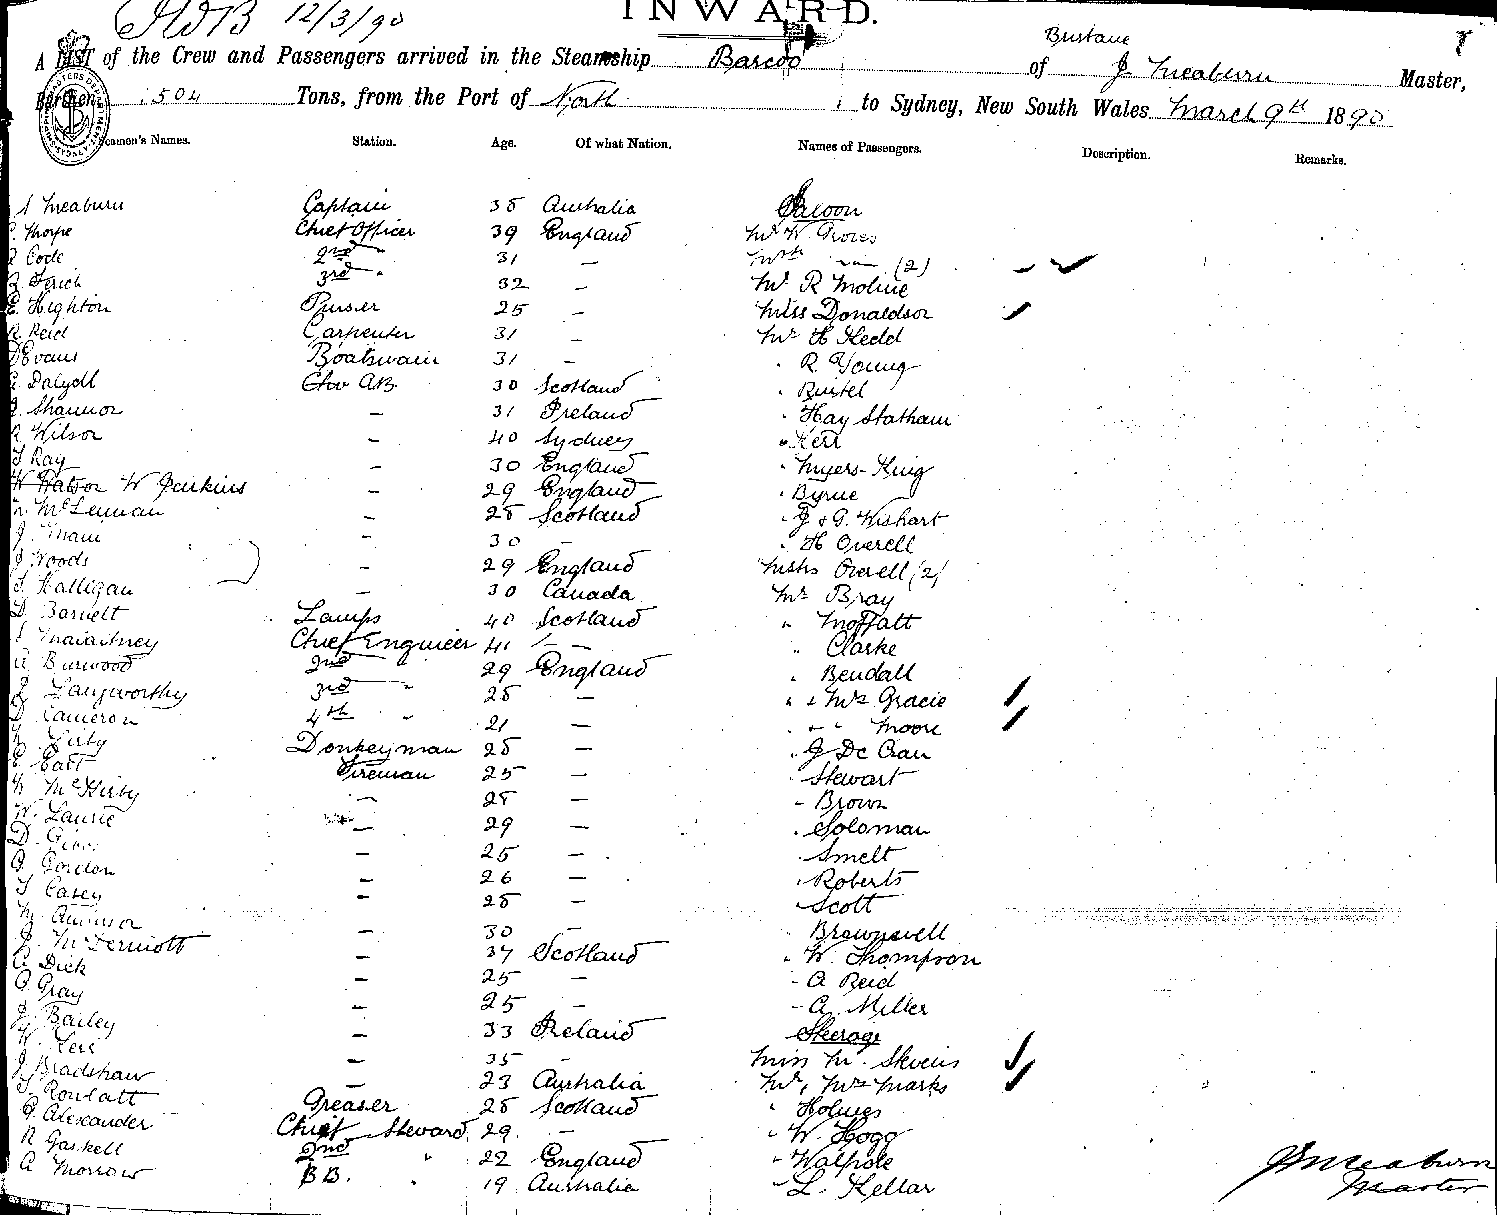 12/3/90
INWARD.
A LIST of the Crew and Passengers arrived in the Steamship Barcoo of Brisbane J Meaburn Master,
Burthen 504 Tons, from the Port of North to Sydney, New South Wales March 9th 1890
Seamen's Names. Station. Age. Of what Nation. Names of Passengers. Description. Remarks.
Meaburn Captain 38 Australia Saloon
Thorpe Chief Officer 39 England Mr W. Groves
Code 2nd " 31 — Mrs — (2)
3rd " 32 — Mr R Moline
Highton Purser 25 — Miss Donaldson
R. Reid Carpenter 31 — Mr H Hedd
D Evans Boatswain 31 — " R. Young
G. Dalyell AB 30 Scotland "
J. Shannon — 31 Ireland " Hay Statham
R Wilson — 40 Sydney " Kerr
T Ray — 30 England " Myers-King
W Watson W Jenkins — 29 England " Byrne
McLennan — 28 Scotland " J & G. Wishart
J. — 30 — " H Overell
J Woods — 29 England Misses Overell (2)
T. Halligan — 30 Canada Mr Bray
D. Barnett Lamps 40 Scotland " Moffatt
Chief Engineer 41 — " Clarke
Burwood 2nd 29 England " Bendall
J Langworthy 3rd " 28 — " & Mrs Gracie
D Cameron 4th " 21 — " " Moore
Kirby Donkeyman 28 — " J De Crau
E East Fireman 25 — " Stewart
McKirby — 28 — " Brown
W. Laurie — 29 — " Soloman
D. — 25 — " Smelt
A. Gordon — 26 — " Roberts
T Casey — 28 — " Scott
— 30 — Brownswell
J. McDermott — 37 Scotland " W. Thompson
C Dick — 25 — " A Reid
A. Gray — 25 — " A. Miller
J. Bailey — 33 Ireland Steerage
— 35 — Miss M. Stevens
J Bradshaw — 23 Australia Mr, Mrs Marks
Rowlatt Greaser 28 Scotland " Holmes
A. Alexander Chief Steward 29 — " W. Hogg
R Gaskell 2nd " 22 England " Walpole
A Morrow BB. " 19 Australia " L. Kellar
J Meaburn
Master